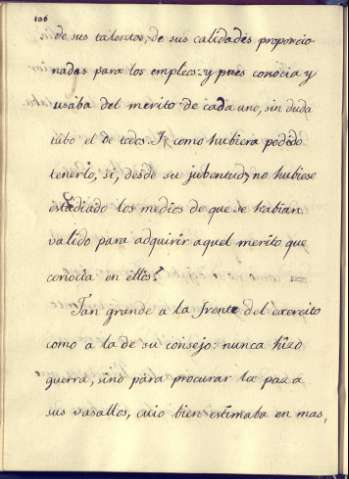 106
de sus talentos, de sus calidades proporcio-
nadas para los empleos: y pues conocia y
usaba del merito de cada uno, sin duda
tubo el de todos. Y, como hubiera podido
tenerlo, si, desde su jubentud, no hubiese
estudiado los medios de que se habian
valido para adquirir aquel merito que
conocia en ellos?
Tan grande a la frente del exercito
como a la de su consejo: nunca hizo
guerra, sino para procurar la paz a
sus vasallos, cuio bien estimaba en mas,